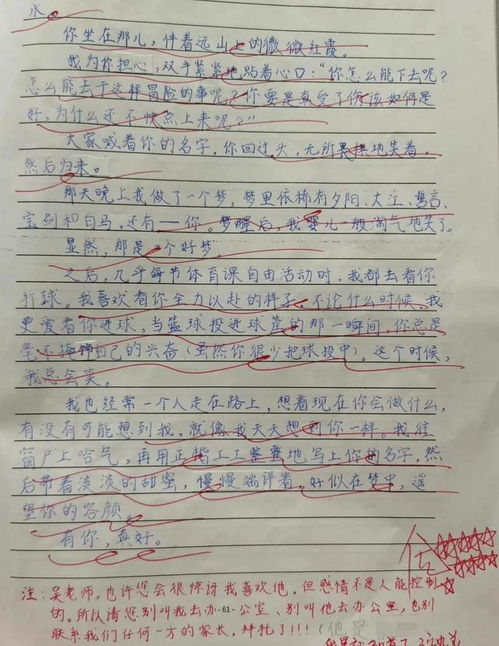 水。
你坐在那儿，伴着远山上的微微红霞。
我为你担心，双手紧紧地贴着心口：“你怎么能下去呢？
怎么能去干这样冒险的事呢？你要是真受了伤该如何是
好，为什么还不快点上来呢？”
大家喊着你的名字，你回过头，无所畏惧地笑着，
然后归来。
那天晚上我做了一个梦，梦里依稀有夕阳、大江、誓言、
宝剑和白马，还有——你。梦醒后，我婴儿一般淘气地笑了。
显然，那是个好梦。
之后，几乎每节体育课自由活动时，我都去看你
打球。我喜欢看你全力以赴的样子。不论什么时候，我
更爱看你进球，当篮球投进球筐的那一瞬间，你总是
毫不掩饰自己的兴奋（虽然你很少把球投中）。这个时候，
我总会笑。
我也经常一个人走在路上，想着现在你会做什么，
有没有可能想到我，就像我天天想到你一样。我往
窗户上哈气，再用正楷工工整整地写上你的名字，然
后带着淡淡的甜蜜，慢慢端详着，好似在梦中，遥
望你的容颜。
有你，真好。
注：吴老师，也许您会很惊讶我喜欢他，但感情不是人能控制
的。所以请您别叫我去办公室、别叫他去办公室，也别
61
联系我们任何一方的家长，拜托了!!!（他是